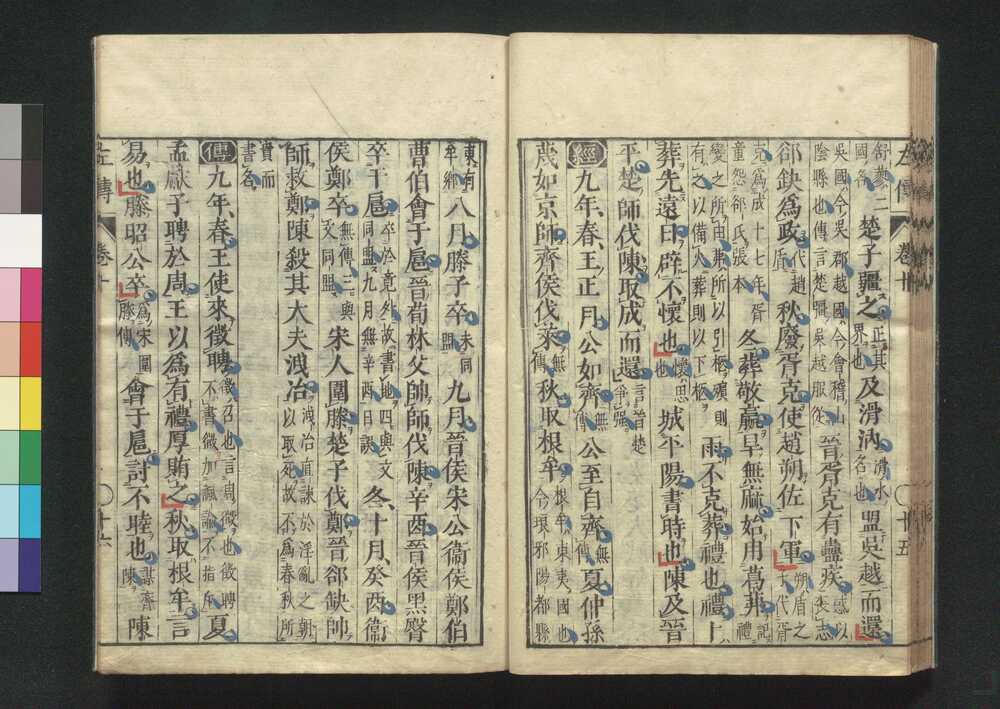 左傳 卷十 十五
舒蓼二國名楚子疆之正其界也及滑汭滑水名也盟吳越而還
吳國今吳郡越國今會稽山陰縣也傳言楚彊吳越服從晉胥克有蠱疾惑以喪志
郤缺爲政代趙盾秋廢胥克使趙朔佐下軍朔盾之子代胥
克爲成十七年胥童怨郤氏張本冬葬敬嬴旱無麻始用葛茀記禮
變之所由茀所以引柩殯則有之以備火葬則以下柩雨不克葬禮也禮卜
葬先遠日辟不懷也懷思也城平陽書時也陳及晉
平楚師伐陳取成而還言晉楚爭彊
經九年春王正月公如齊無傳公至自齊無傳夏仲孫
蔑如京師齊侯伐萊無傳秋取根牟根牟東夷國也今琅邪陽都縣
東有牟鄉八月滕子卒未同盟九月晉侯宋公衞侯鄭伯
曹伯會于扈晉荀林父帥師伐陳辛酉晉侯黑臀
卒于扈卒於竟外故書地四與文同盟九月無辛酉日誤冬十月癸酉衞
侯鄭卒無傳二與文同盟宋人圍滕楚子伐鄭晉郤缺帥
師救鄭陳殺其大夫洩冶洩冶直諫於淫亂之朝以取死故不爲春秋所
貴而書名
傳九年春王使來徵聘徵召也言周徵也徵聘不書微加諷諭不指斥夏
孟獻子聘於周王以爲有禮厚賄之秋取根牟言
易也滕昭公卒爲宋圍滕傳會于扈討不睦也謀齊陳陳
左傳 卷十 十六